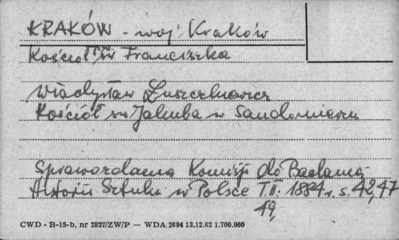 KRAKÓW - woj. Kraków
Kościół św Franciszka
Władysław Łuszczkiewicz
Kościół św Jakuba w Sandomierzu
Sprawozdania Komisji do Badania
Historii Sztuki w Polsce T II. 1884 r. s. 42, 47
49,
CWD - B-15-b, nr 2827/ZW/P — WDA 2694 13.12.62 1.700.000